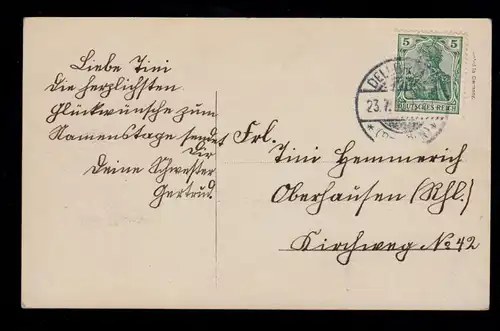 Liebe Tini
Die herzlichsten
Glückwünsche zum
Namenstage sendet
Dir
Deine Schwester
Gertrud.
Frl.
Tini Hemmerich
Oberhausen (Rhl.)
Kirchweg No 42
5 5
DEUTSCHES REICH
23.7.